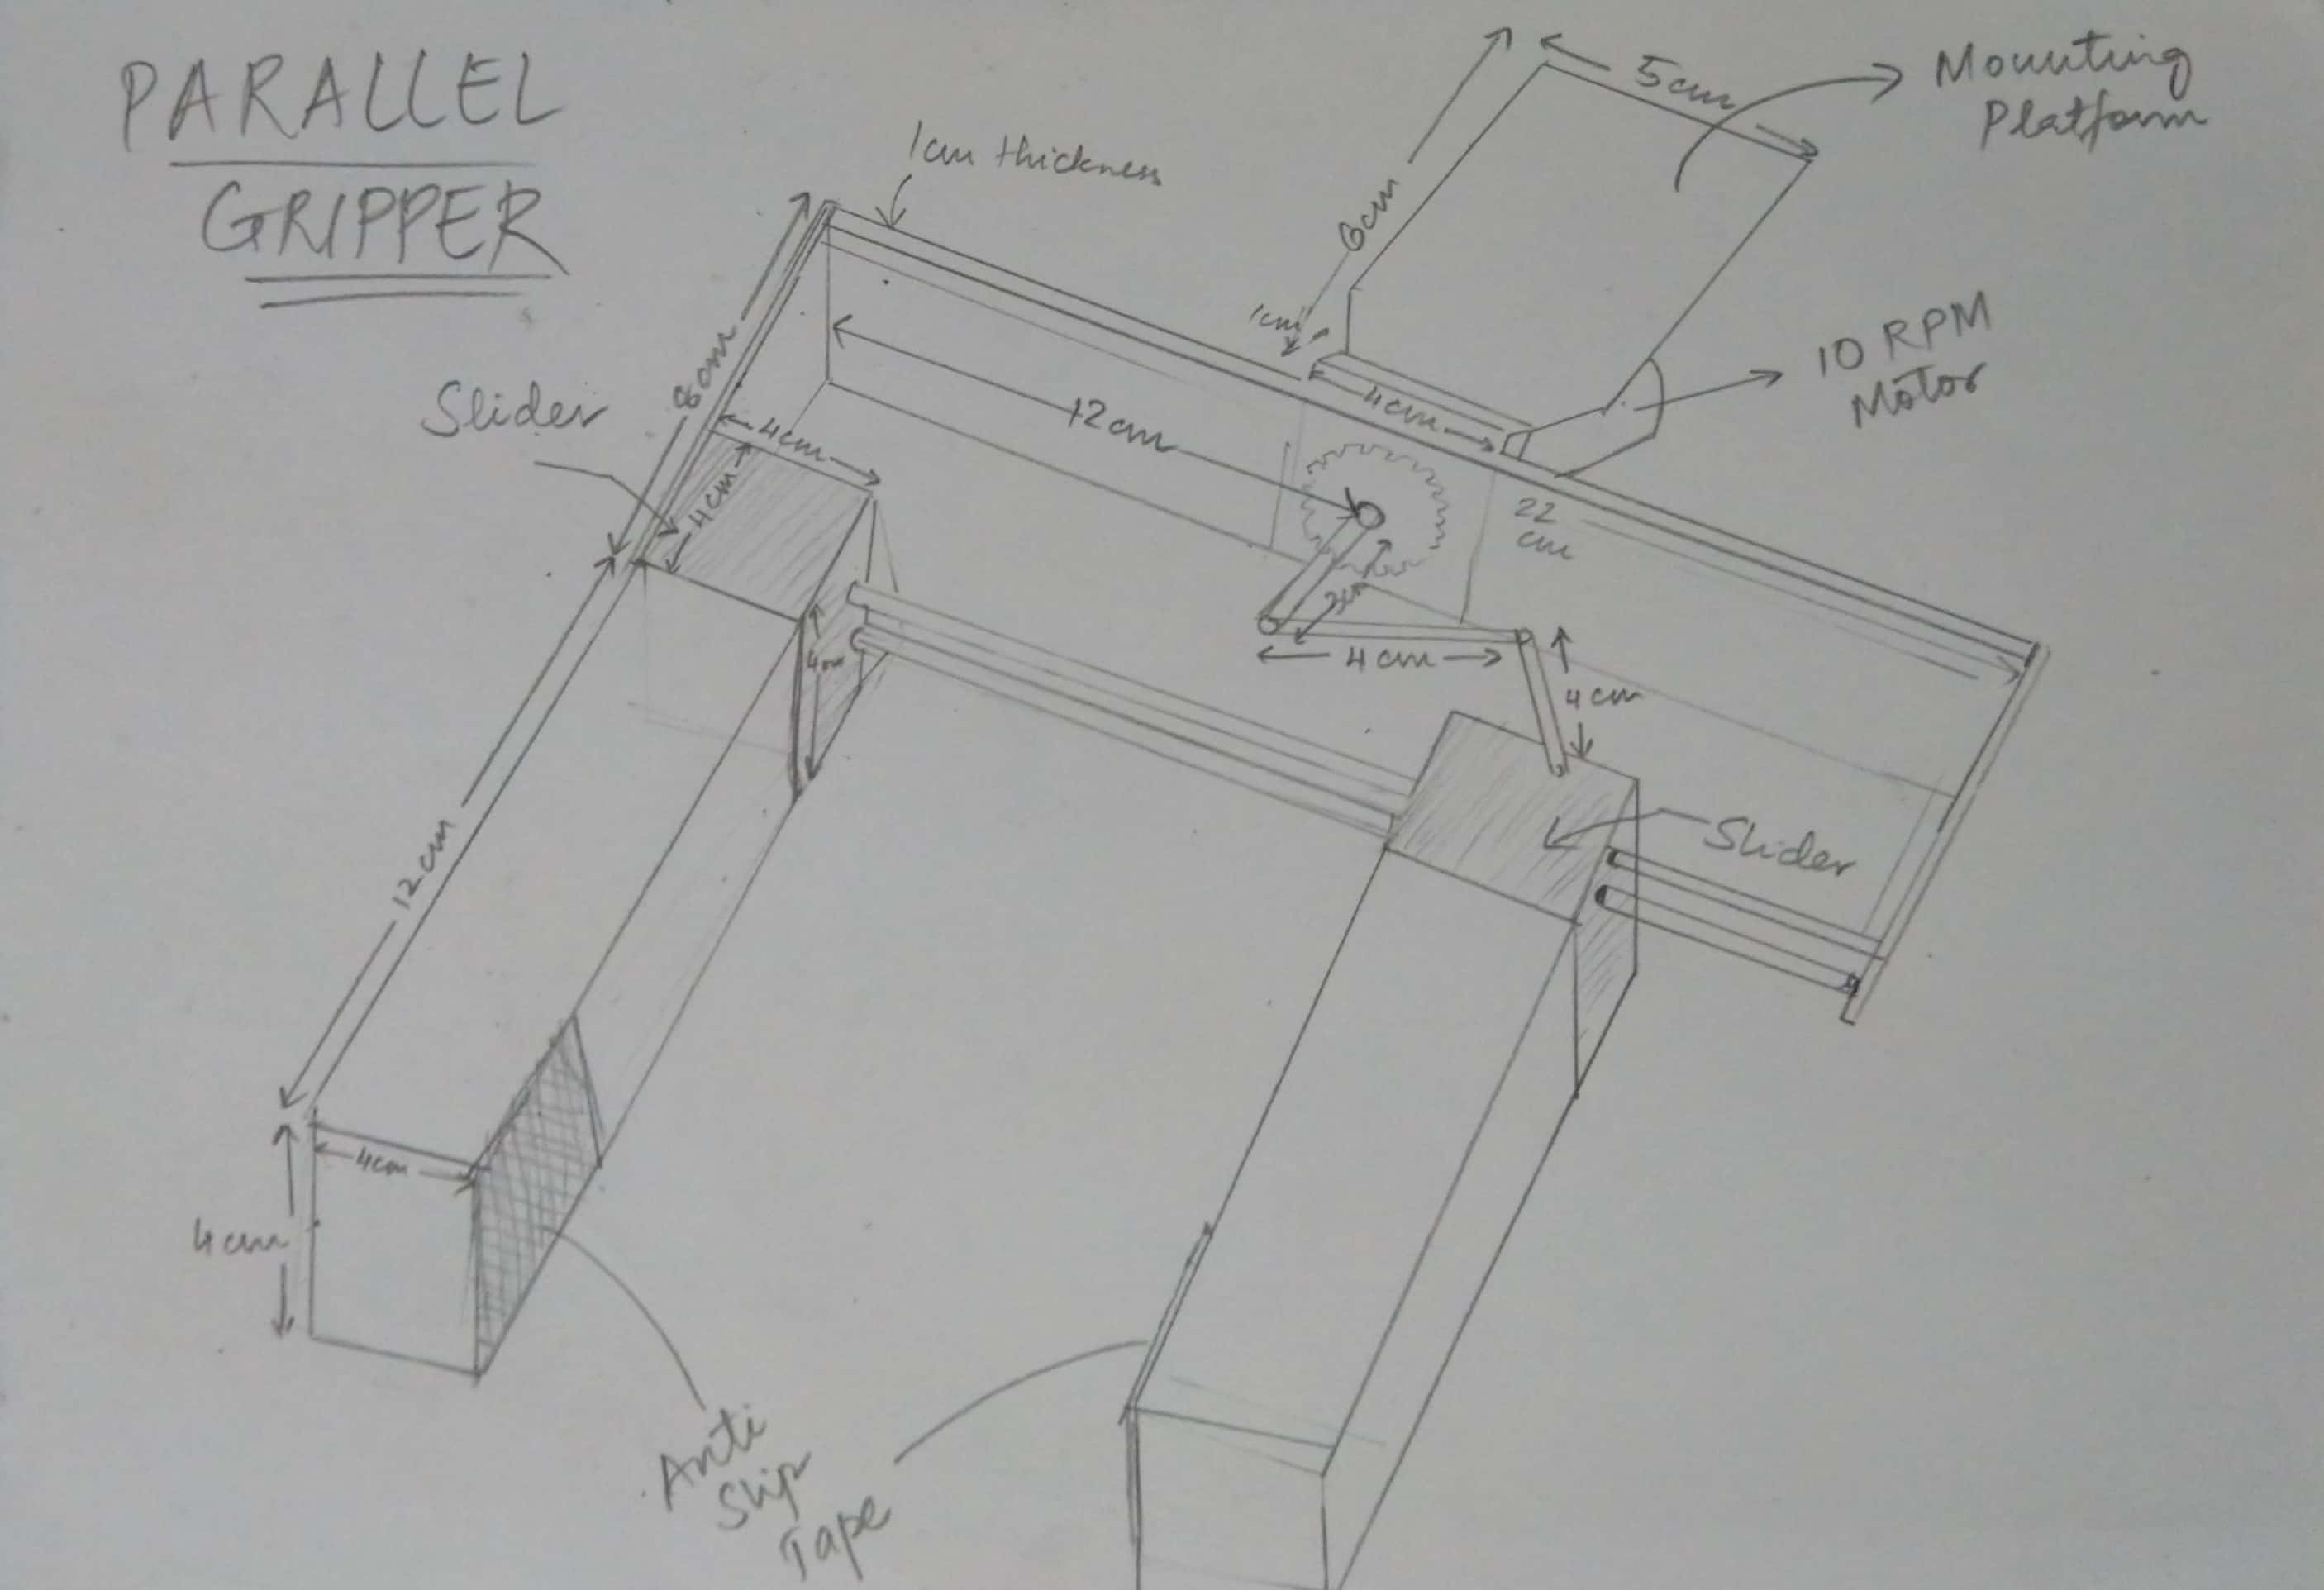 PARALLEL
GRIPPER
1cm thickness
5cm
Mounting
Platform
6cm
1cm
4cm
10 RPM
Motor
8cm
Slider
12cm
4cm
4cm
22
cm
3cm
4cm
4cm
4cm
Slider
12cm
4cm
4cm
Anti
Slip
Tape